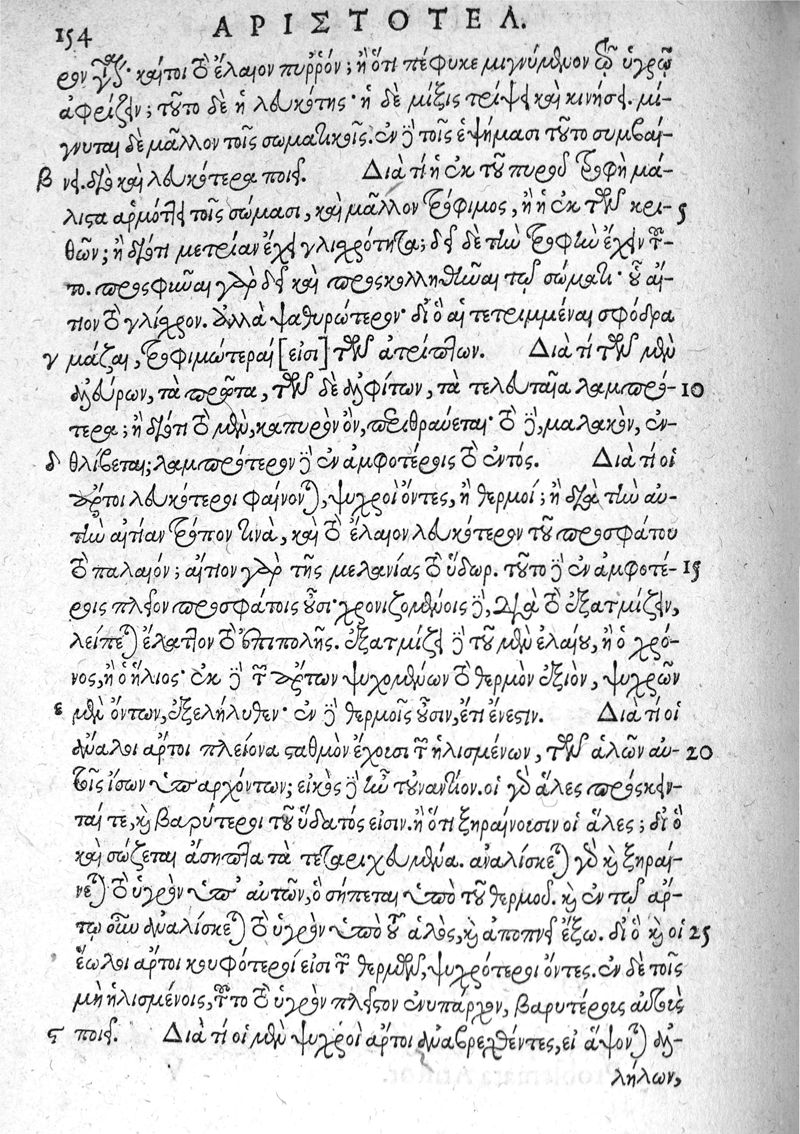 154 ΑΡΙΣΤΟΤΕΛ.
ρον γάρ· καίτοι τὸ ἔλαιον πυῤῥόν; ἢ ὅτι πέφυκε μιγνύμενον τῷ ὑγρῷ
ἀφρίζειν; τοῦτο δὲ ἡ λευκότης· ἡ δὲ μίξις τρίψει καὶ κινήσει. μί-
γνυται δὲ μᾶλλον τοῖς σωματικοῖς. ἐν δὲ τοῖς ἑψήμασι τοῦτο συμβαί-
β νει. διὸ καὶ λευκότερα ποιεῖ. Διὰ τί ἡ ἐκ τοῦ πυροῦ τροφὴ μά-
λιστα ἁρμόττει τοῖς σώμασι, καὶ μᾶλλον τρόφιμος, ἢ ἡ ἐκ τῶν κρι- 5
θῶν; ἢ διότι μετρίαν ἔχει γλισχρότητα; δεῖ δὲ τὴν τροφὴν ἔχειν τοῦ-
το. προσφῦναι γὰρ δεῖ καὶ προσκολληθῆναι τῷ σώματι· οὗ αἴ-
τιον τὸ γλίσχρον. ἀλλὰ ψαθυρώτερον· δι' ὃ αἱ τετριμμέναι σφόδρα
γ μάζαι, τροφιμώτεραί [εἰσι] τῶν ἀτρίπτων. Διὰ τί τῶν μὲν
ἀλεύρων, τὰ πρῶτα, τῶν δὲ ἀλφίτων, τὰ τελευταῖα λαμπρό- 10
τερα; ἢ διότι τὸ μὲν, καπυρὸν ὂν, περιθραύεται· τὸ δὲ, μαλακὸν, ἐν-
δ θλίβεται; λαμπρότερον δὲ ἐν ἀμφοτέροις τὸ ἐντός. Διὰ τί οἱ
ἄρτοι λευκότεροι φαίνονται, ψυχροὶ ὄντες, ἢ θερμοί; ἢ διὰ τὴν αὐ-
τὴν αἰτίαν τρόπον τινὰ, καὶ τὸ ἔλαιον λευκότερον τοῦ προσφάτου
τὸ παλαιόν; αἴτιον γὰρ τῆς μελανίας τὸ ὕδωρ. τοῦτο δὲ ἐν ἀμφοτέ- 15
ροις πλεῖον προσφάτοις οὖσι· χρονιζομένοις δὲ, διὰ τὸ ἐξατμίζειν,
λείπεται ἔλαττον τὸ ἐπιπολῆς. ἐξατμίζει δὲ τοῦ μὲν ἐλαίου, ἢ ὁ χρό-
νος, ἢ ὁ ἥλιος· ἐκ δὲ τῶν ἄρτων ψυχομένων τὸ θερμὸν ἐξιὸν, ψυχρῶν
ε μὲν ὄντων, ἐξελήλυθεν· ἐν δὲ θερμοῖς οὖσιν, ἔτι ἔνεστιν. Διὰ τί οἱ
ἄναλοι ἄρτοι πλείονα σταθμὸν ἔχουσι τῶν ἡλισμένων, τῶν ἄλλων αὐ- 20
τοῖς ἴσων ὑπαρχόντων; εἰκὸς δὲ ἦν τοὐναντίον. οἱ γὸ ἅλες πρόσκειν-
ταί τε, καὶ βαρύτεροι τοῦ ὕδατός εἰσιν. ἢ ὅτι ξηραίνουσιν οἱ ἅλες; δι' ὃ
καὶ σώζεται ἄσηπτα τὰ τεταριχευμένα. ἀναλίσκεται γὰρ καὶ ξηραί-
νεται τὸ ὑγρὸν ὑπ' αὐτῶν, ὃ σήπεται ὑπὸ τοῦ θερμοῦ. καὶ ἐν τῷ ἄρ-
τῳ οὖν ἀναλίσκεται τὸ ὑγρὸν ὑπὸ τοῦ ἁλὸς, καὶ ἀποπνεῖ ἔξω. δι' ὃ καὶ οἱ 25
ἕωλοι ἄρτοι κουφότεροί εἰσι τῶν θερμῶν, ψυχρότεροι ὄντες. ἐν δὲ τοῖς
μὴ ἡλισμένοις, τοῦτο τὸ ὑγρὸν πλεῖστον ἐνυπάρχον, βαρυτέρους αὐτοὺς
ς ποιεῖ. Διὰ τί οἱ μὲν ψυχροὶ ἄρτοι ἀναβρεχθέντες, εἰ ἅψονται ἀλ-
λήλων,